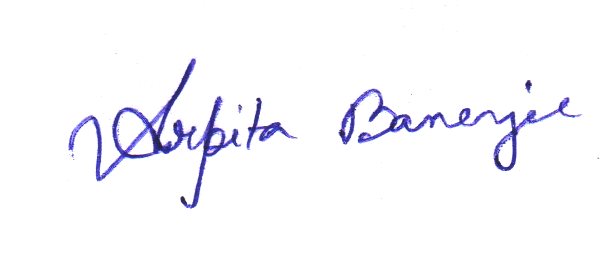 Arpita Banerjee